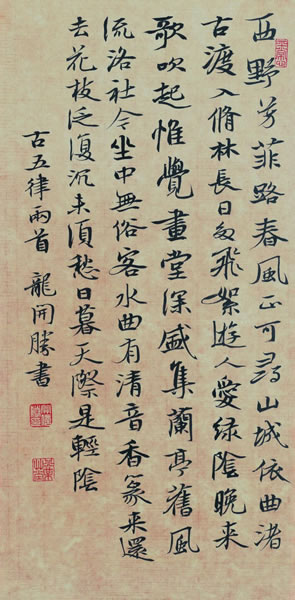 西野芳菲路春風正可尋山城依曲渚
古渡入脩林長日多飛絮遊人愛綠陰晚來
歌吹起惟覺畫堂深盛集蘭亭舊風
流洛社今坐中無俗客水曲有清音香篆來還
去花枝泛復沉未須愁日暮天際是輕陰
古五律兩首 龍開勝書